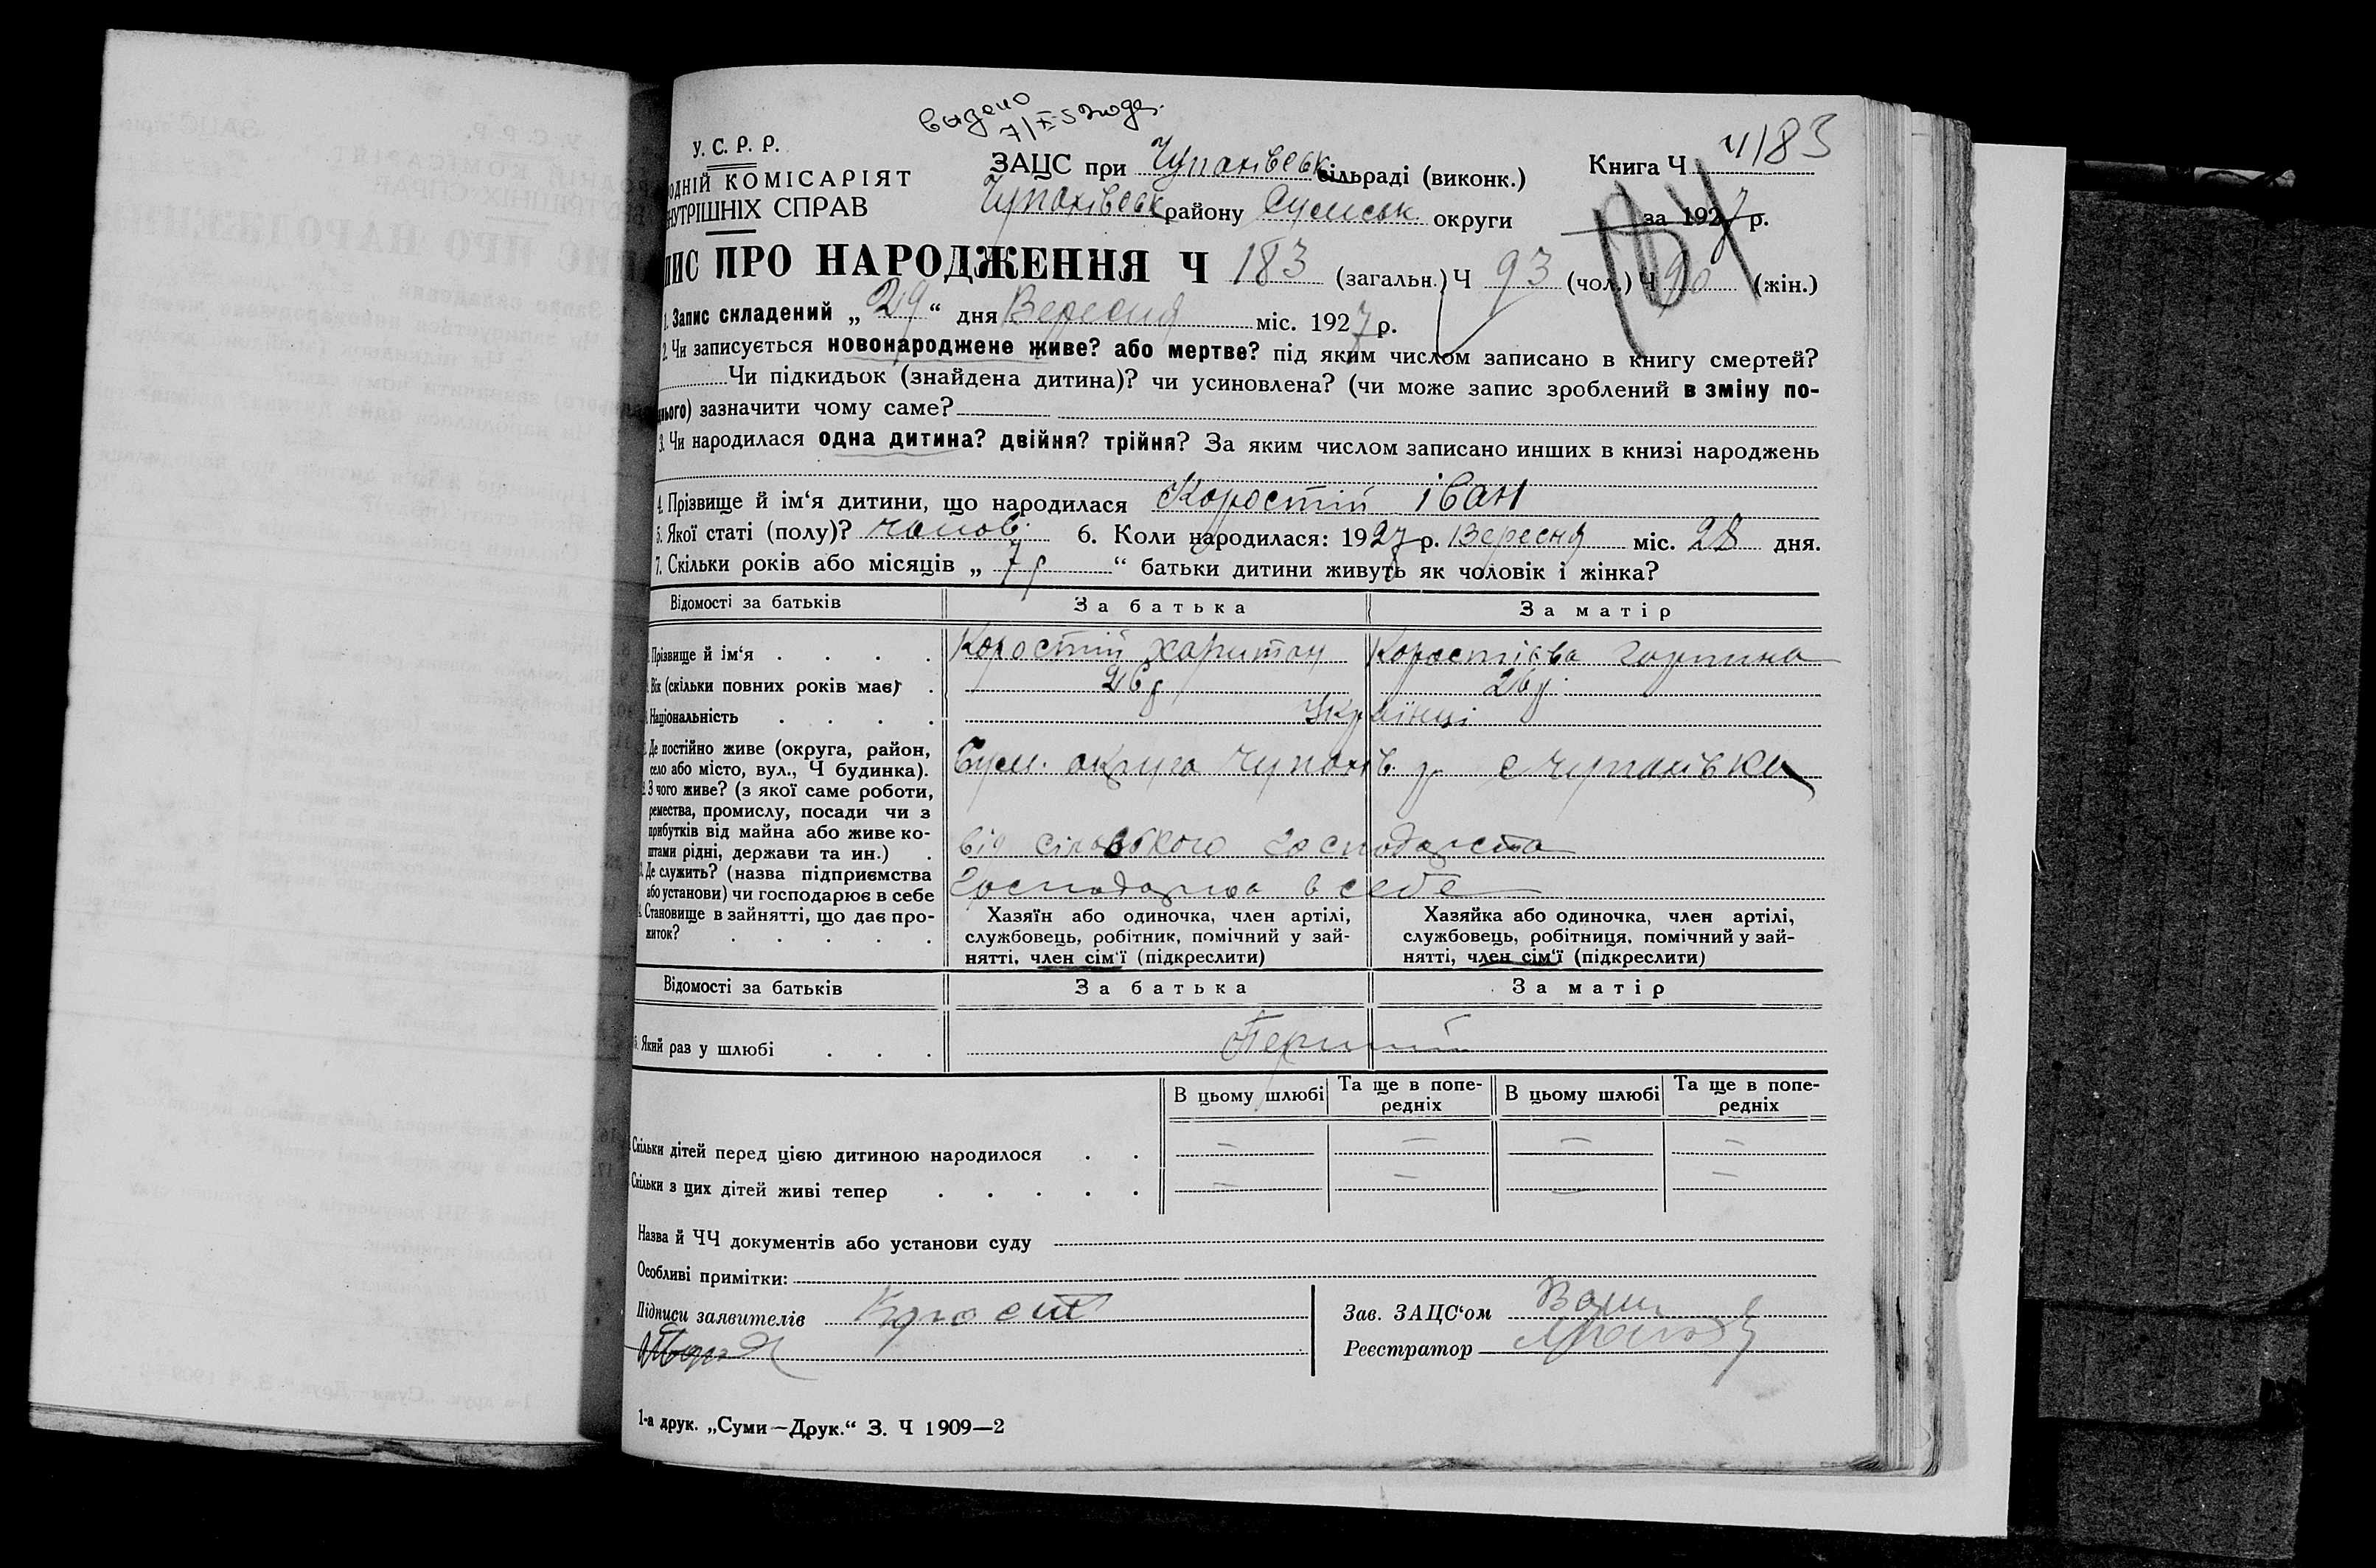 выдано
7/X-50 года.
У. С. Р. Р.
ОДНІЙ КОМІСАРІЯТ
НУТРІШНІХ СПРАВ
ЗАЦС при Чупахівськ сільраді (виконк.)
Чупахівськ району Сумськ округи
Книга Ч
Ч183
за 1927 р.
ПИС ПРО НАРОДЖЕННЯ Ч 183 (загальн.) Ч 93 (чол.) Ч 90 (жін.)
1. Запис складений „ 29 “ дня Вересня міс. 1927 р.
2. Чи записується новонароджене живе? або мертве? під яким числом записано в книгу смертей?
Чи підкидьок (знайдена дитина)? чи усиновлена? (чи може запис зроблений в зміну по-
нього) зазначити чому саме?
3. Чи народилася одна дитина? двійня? трійня? За яким числом записано инших в книзі народжень
4. Прізвище й ім‘я дитини, що народилася Коростій іван
5. Якої статі (полу)? чолов. 6. Коли народилася: 1927 р. Вересня міс. 28 дня.
7. Скільки років або місяців „ 7 р “ батьки дитини живуть як чоловік і жінка?
Відомості за батьків За батька За матір
Прізвище й ім‘я Коростій Харитон Коростієва Горпина
Вік (скільки повних років має) 26 р 26 р.
Національність Українці
Де постійно живе (округа, район,
село або місто, вул., Ч будинка). Сум. округа Чупахів. р с Чупахівка
З чого живе? (з якої саме роботи,
ремества, промислу, посади чи з
прибутків від майна або живе ко-
штами рідні, держави та ин.) від сільського господарста
Де служить? (назва підприємства
або установи) чи господарює в себе господарюа в себе
Становище в зайнятті, що дає про-
житок?
Хазяїн або одиночка, член артілі,
службовець, робітник, помічний у зай-
нятті, член сім‘ї (підкреслити)
Хазяйка або одиночка, член артілі,
службовець, робітниця, помічний у зай-
нятті, член сім‘ї (підкреслити)
Відомості за батьків За батька За матір
Який раз у шлюбі Перший
В цьому шлюбі Та ще в попе-
редніх В цьому шлюбі Та ще в попе-
редніх
Скільки дітей перед цією дитиною народилося — — — —
Скільки з цих дітей живі тепер — — — —
Назва й ЧЧ документів або установи суду
Особливі примітки:
Підписи заявителів
Зав. ЗАЦС‘ом
Реєстратор
1-а друк. „Суми—Друк.“ З. Ч 1909—2